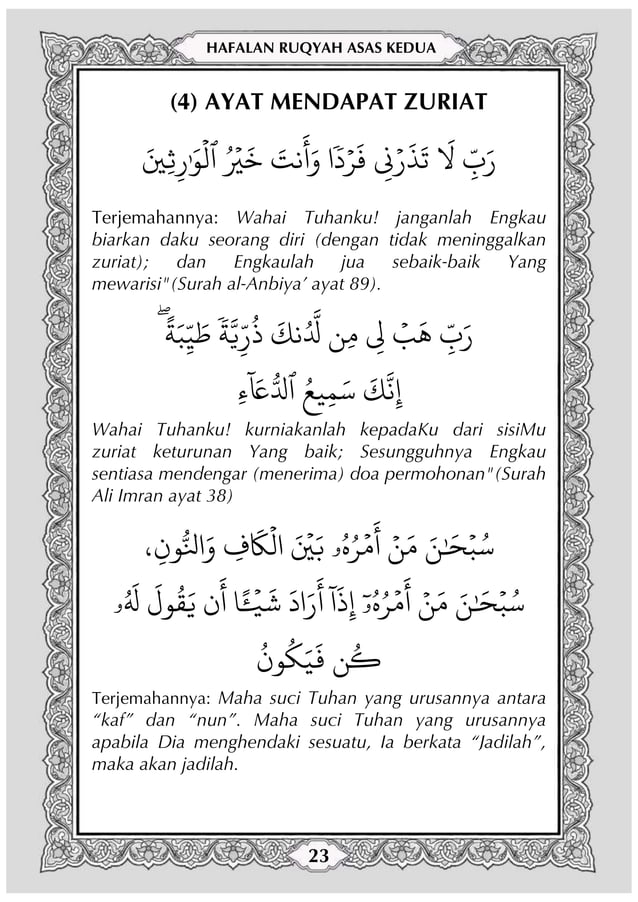 HAFALAN RUQYAH ASAS KEDUA
(4) AYAT MENDAPAT ZURIAT
رَبِّ لَا تَذَرْنِى فَرْدًا وَأَنتَ خَيْرُ ٱلْوَٰرِثِينَ
Terjemahannya: Wahai Tuhanku! janganlah Engkau
biarkan daku seorang diri (dengan tidak meninggalkan
zuriat); dan Engkaulah jua sebaik-baik Yang
mewarisi"(Surah al-Anbiya’ ayat 89).
رَبِّ هَبْ لِى مِن لَّدُنكَ ذُرِّيَّةً طَيِّبَةً ۖ
إِنَّكَ سَمِيعُ ٱلدُّعَآءِ
Wahai Tuhanku! kurniakanlah kepadaKu dari sisiMu
zuriat keturunan Yang baik; Sesungguhnya Engkau
sentiasa mendengar (menerima) doa permohonan"(Surah
Ali Imran ayat 38)
سُبْحَـٰنَ مَنْ أَمْرُهُۥ بَيْنَ الْكَافِ وَالنُّونِ،
سُبْحَـٰنَ مَنْ أَمْرُهُۥٓ إِذَآ أَرَادَ شَيْـًٔا أَن يَقُولَ لَهُۥ
كُن فَيَكُونُ
Terjemahannya: Maha suci Tuhan yang urusannya antara
“kaf” dan “nun”. Maha suci Tuhan yang urusannya
apabila Dia menghendaki sesuatu, Ia berkata “Jadilah”,
maka akan jadilah.
23